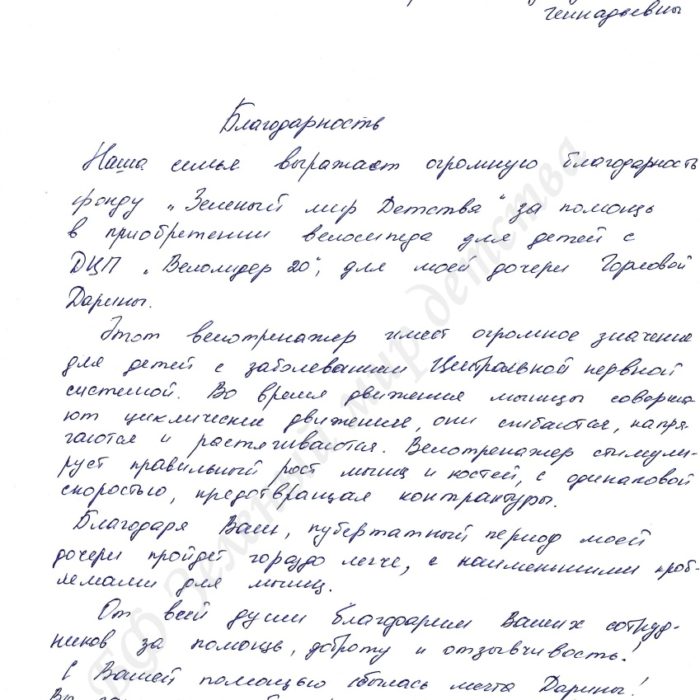 Геннадьевны
Благодарность
Наша семья выражает огромную благодарность
фонду „Зеленый мир Детства“ за помощь
в приобретении велосипеда для детей с
ДЦП „Велолидер 20“, для моей дочери Горловой
Дарины.
Этот велотренажер имеет огромное значение
для детей с заболеваниями Центральной нервной
системой. Во время движения мышцы соверша-
ют циклические движение, они сгибаются, напря-
гаются и растягиваются. Велотренажер стимули-
рует правильный рост мышц и костей, с одинаковой
скоростью, предотвращая контрактуры.
Благодаря Вам, пубертатный период моей
дочери пройдет гораздо легче, с наименьшими проб-
лемами для мышц.
От всей души благодарим Ваших сотруд-
ников за помощь, доброту и отзывчивость!
С Вашей помощью сбылась мечта Дарины!
БФ Зеленый мир детства